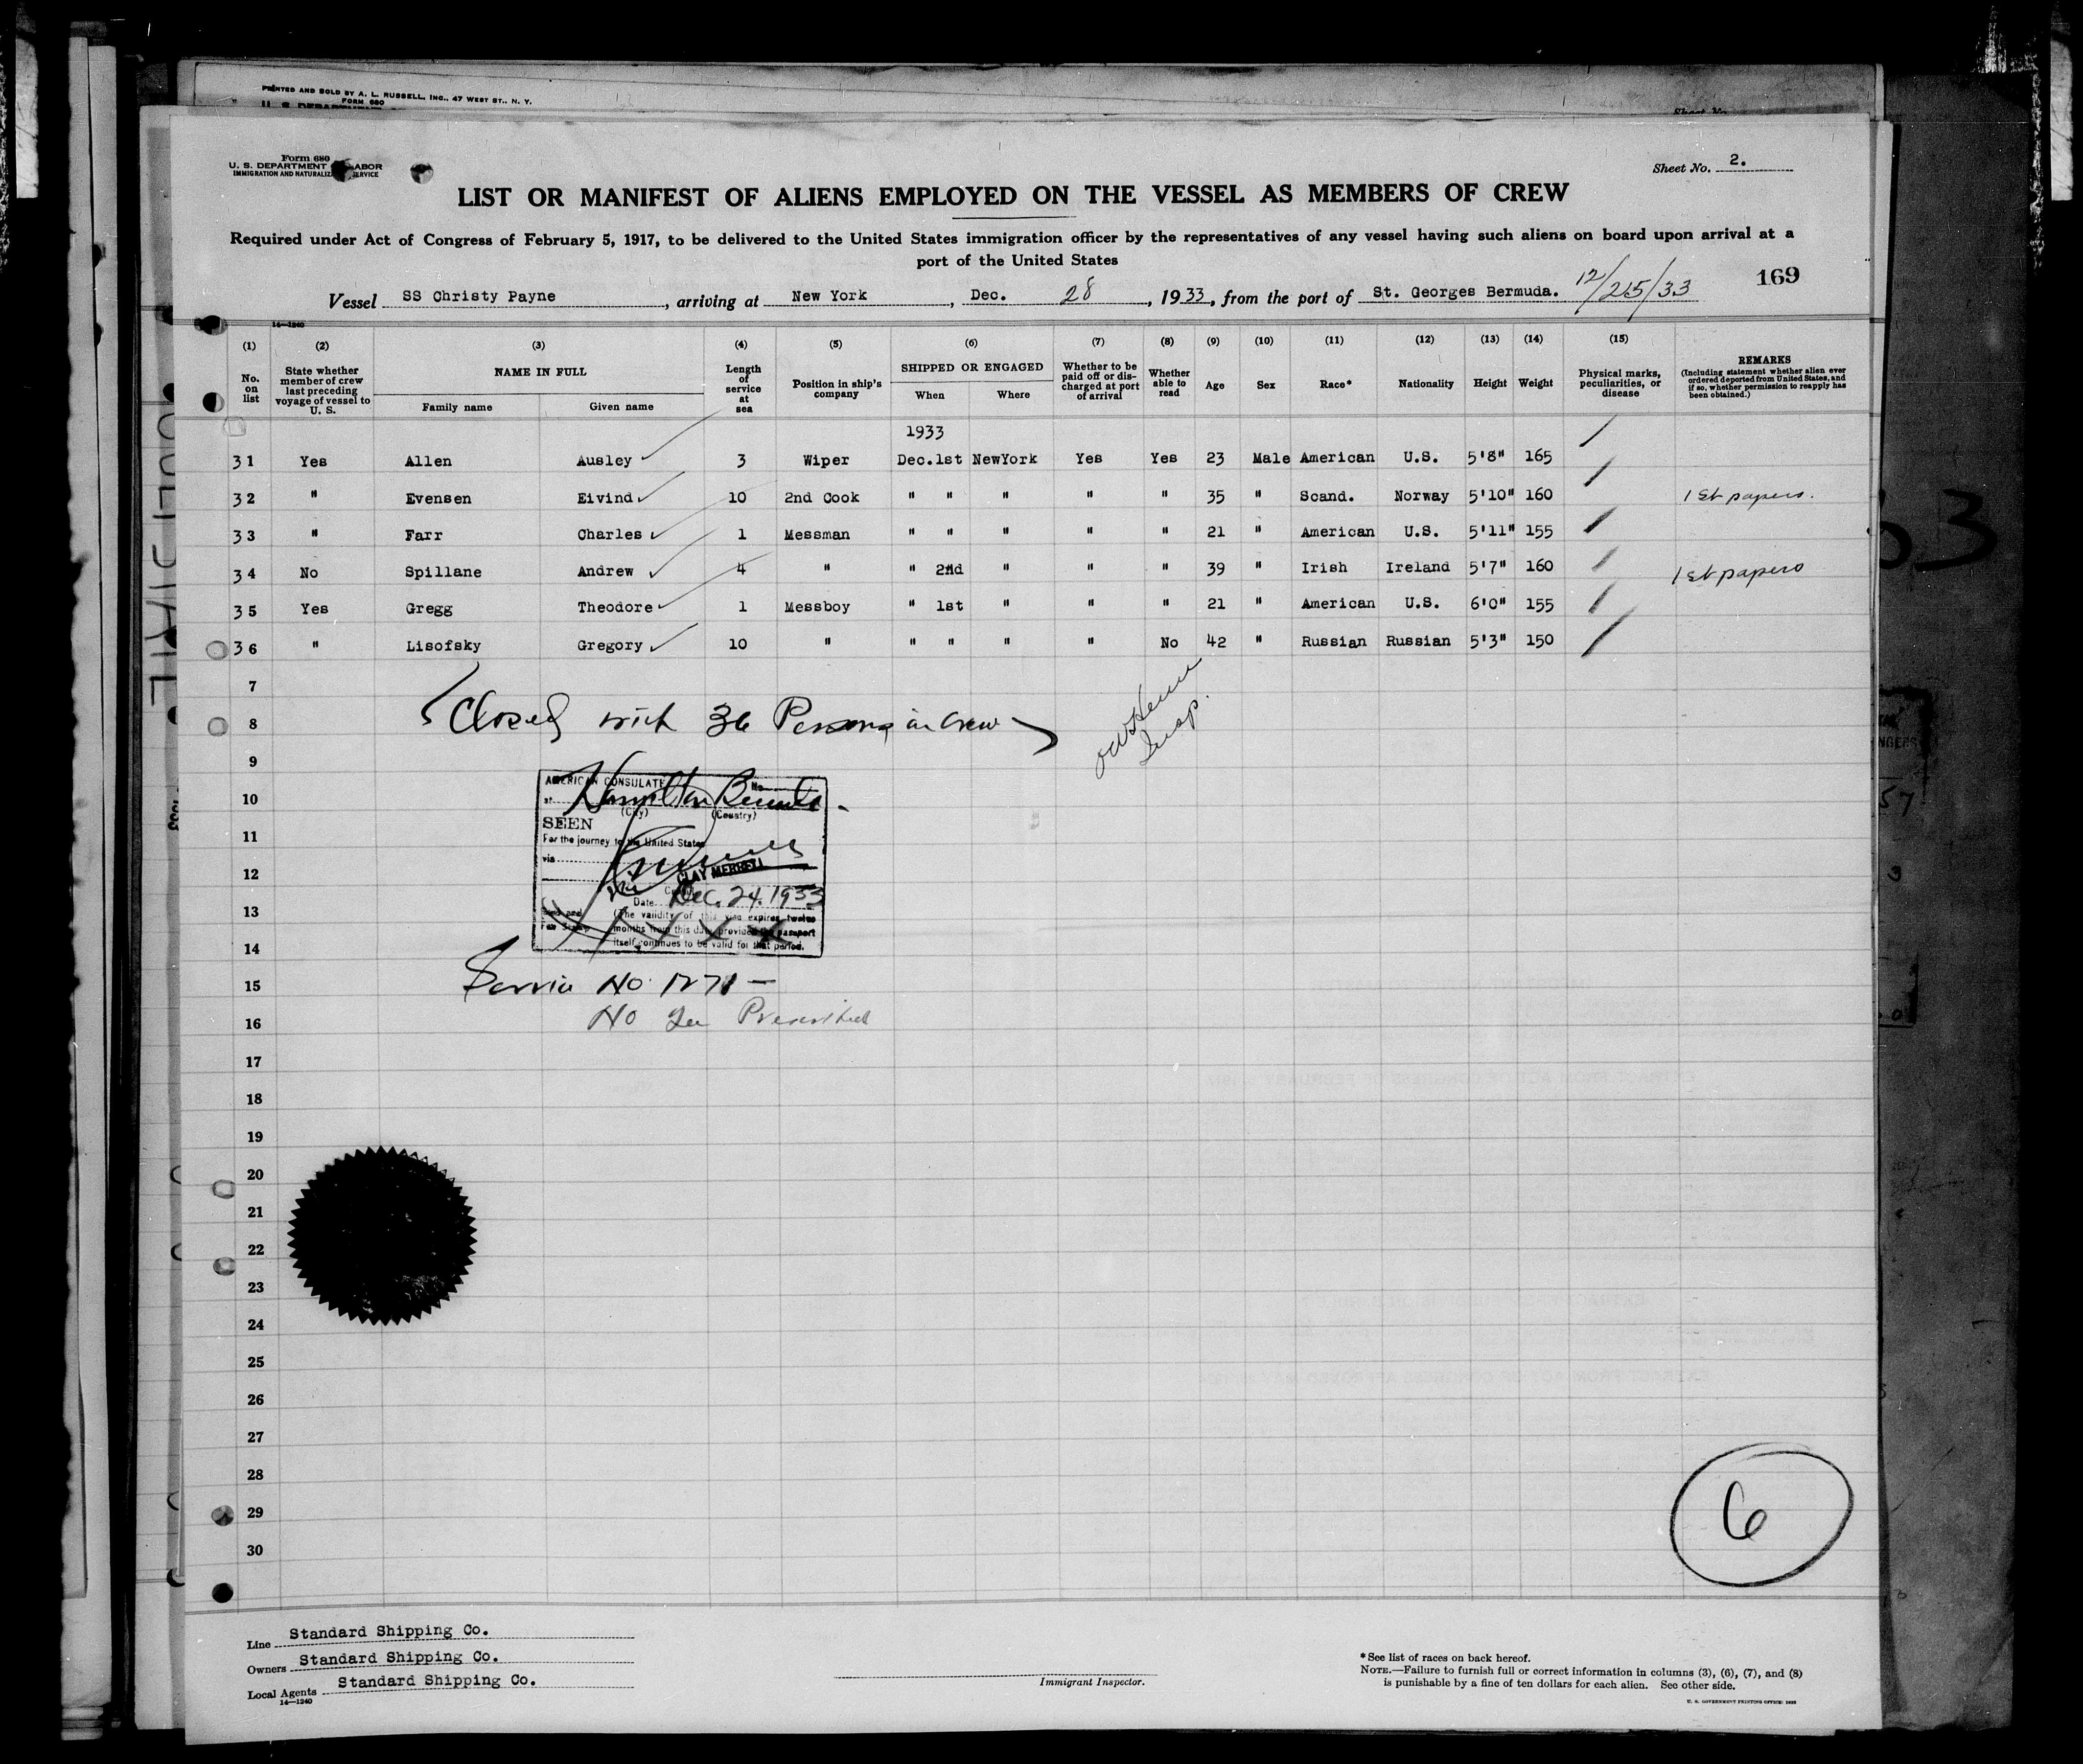 PRINTED AND SOLD BY A. L. RUSSELL, INC., 47 WEST ST., N. Y.
FORM 680
Form 680
U. S. DEPARTMENT LABOR
IMMIGRATION AND NATURALIZ SERVICE
Sheet No. 2.
LIST OR MANIFEST OF ALIENS EMPLOYED ON THE VESSEL AS MEMBERS OF CREW
Required under Act of Congress of February 5, 1917, to be delivered to the United States immigration officer by the representatives of any vessel having such aliens on board upon arrival at a
port of the United States
169
Vessel SS Christy Payne, arriving at New York, Dec. 28, 1933, from the port of St. Georges Bermuda. 12/25/33
14—1240
(1) (2) (3) (4) (5) (6) (7) (8) (9) (10) (11) (12) (13) (14) (15)
No. on list
State whether member of crew last preceding voyage of vessel to U. S.
NAME IN FULL
Family name
Given name
Length of service at sea
Position in ship's company
SHIPPED OR ENGAGED
When
Where
Whether to be paid off or discharged at port of arrival
Whether able to read
Age
Sex
Race*
Nationality
Height
Weight
Physical marks, peculiarities, or disease
REMARKS
(Including statement whether alien ever ordered deported from United States, and if so, whether permission to reapply has been obtained.)
1933
31 Yes Allen Ausley 3 Wiper Dec.1st NewYork Yes Yes 23 Male American U.S. 5'8" 165
32 " Evensen Eivind 10 2nd Cook " " " " " 35 " Scand. Norway 5'10" 160 1st papers.
33 " Farr Charles 1 Messman " " " " " 21 " American U.S. 5'11" 155
34 No Spillane Andrew 4 " " 2nd " " " 39 " Irish Ireland 5'7" 160 1st papers
35 Yes Gregg Theodore 1 Messboy " 1st " " " 21 " American U.S. 6'0" 155
36 " Lisofsky Gregory 10 " " " " " No 42 " Russian Russian 5'3" 150
7
8 Closed with 36 Persons in crew
Insp.
9
10
11
12
13
14
15
16
17
18
19
20
21
22
23
24
25
26
27
28
29
30
AMERICAN CONSULATE
at Hamilton Bermuda
(City) (Country)
SEEN
For the journey to the United States
via
CLAY MERRELL
Date Dec. 24. 1933
(The validity of this visa expires twelve
months from this date provided the passport
itself continues to be valid for that period.
Service No. 1271 —
No fee Prescribed
6
Line Standard Shipping Co.
Owners Standard Shipping Co.
Local Agents Standard Shipping Co.
14—1240
Immigrant Inspector.
*See list of races on back hereof.
NOTE.—Failure to furnish full or correct information in columns (3), (6), (7), and (8)
is punishable by a fine of ten dollars for each alien. See other side.
U. S. GOVERNMENT PRINTING OFFICE: 1932